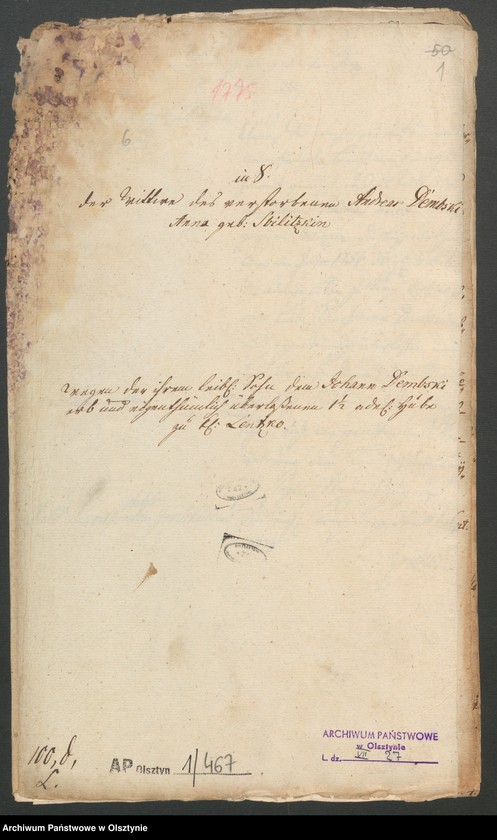 50
1
1775
6
in S.
der Wittwe des verstorbenen Andreas Dembski
Anna geb: Sbilitzkin
wegen der ihrem leibl: Sohn dem Johann Dembski
erb und eigenthümlich überlaßenen 1½ adel: Hube
zu Kl: Lentzko.
100, d,
L.
AP Olsztyn 1/467
ARCHIWUM PAŃSTWOWE
w Olsztynie
L. dz. VII 27
Archiwum Państwowe w Olsztynie